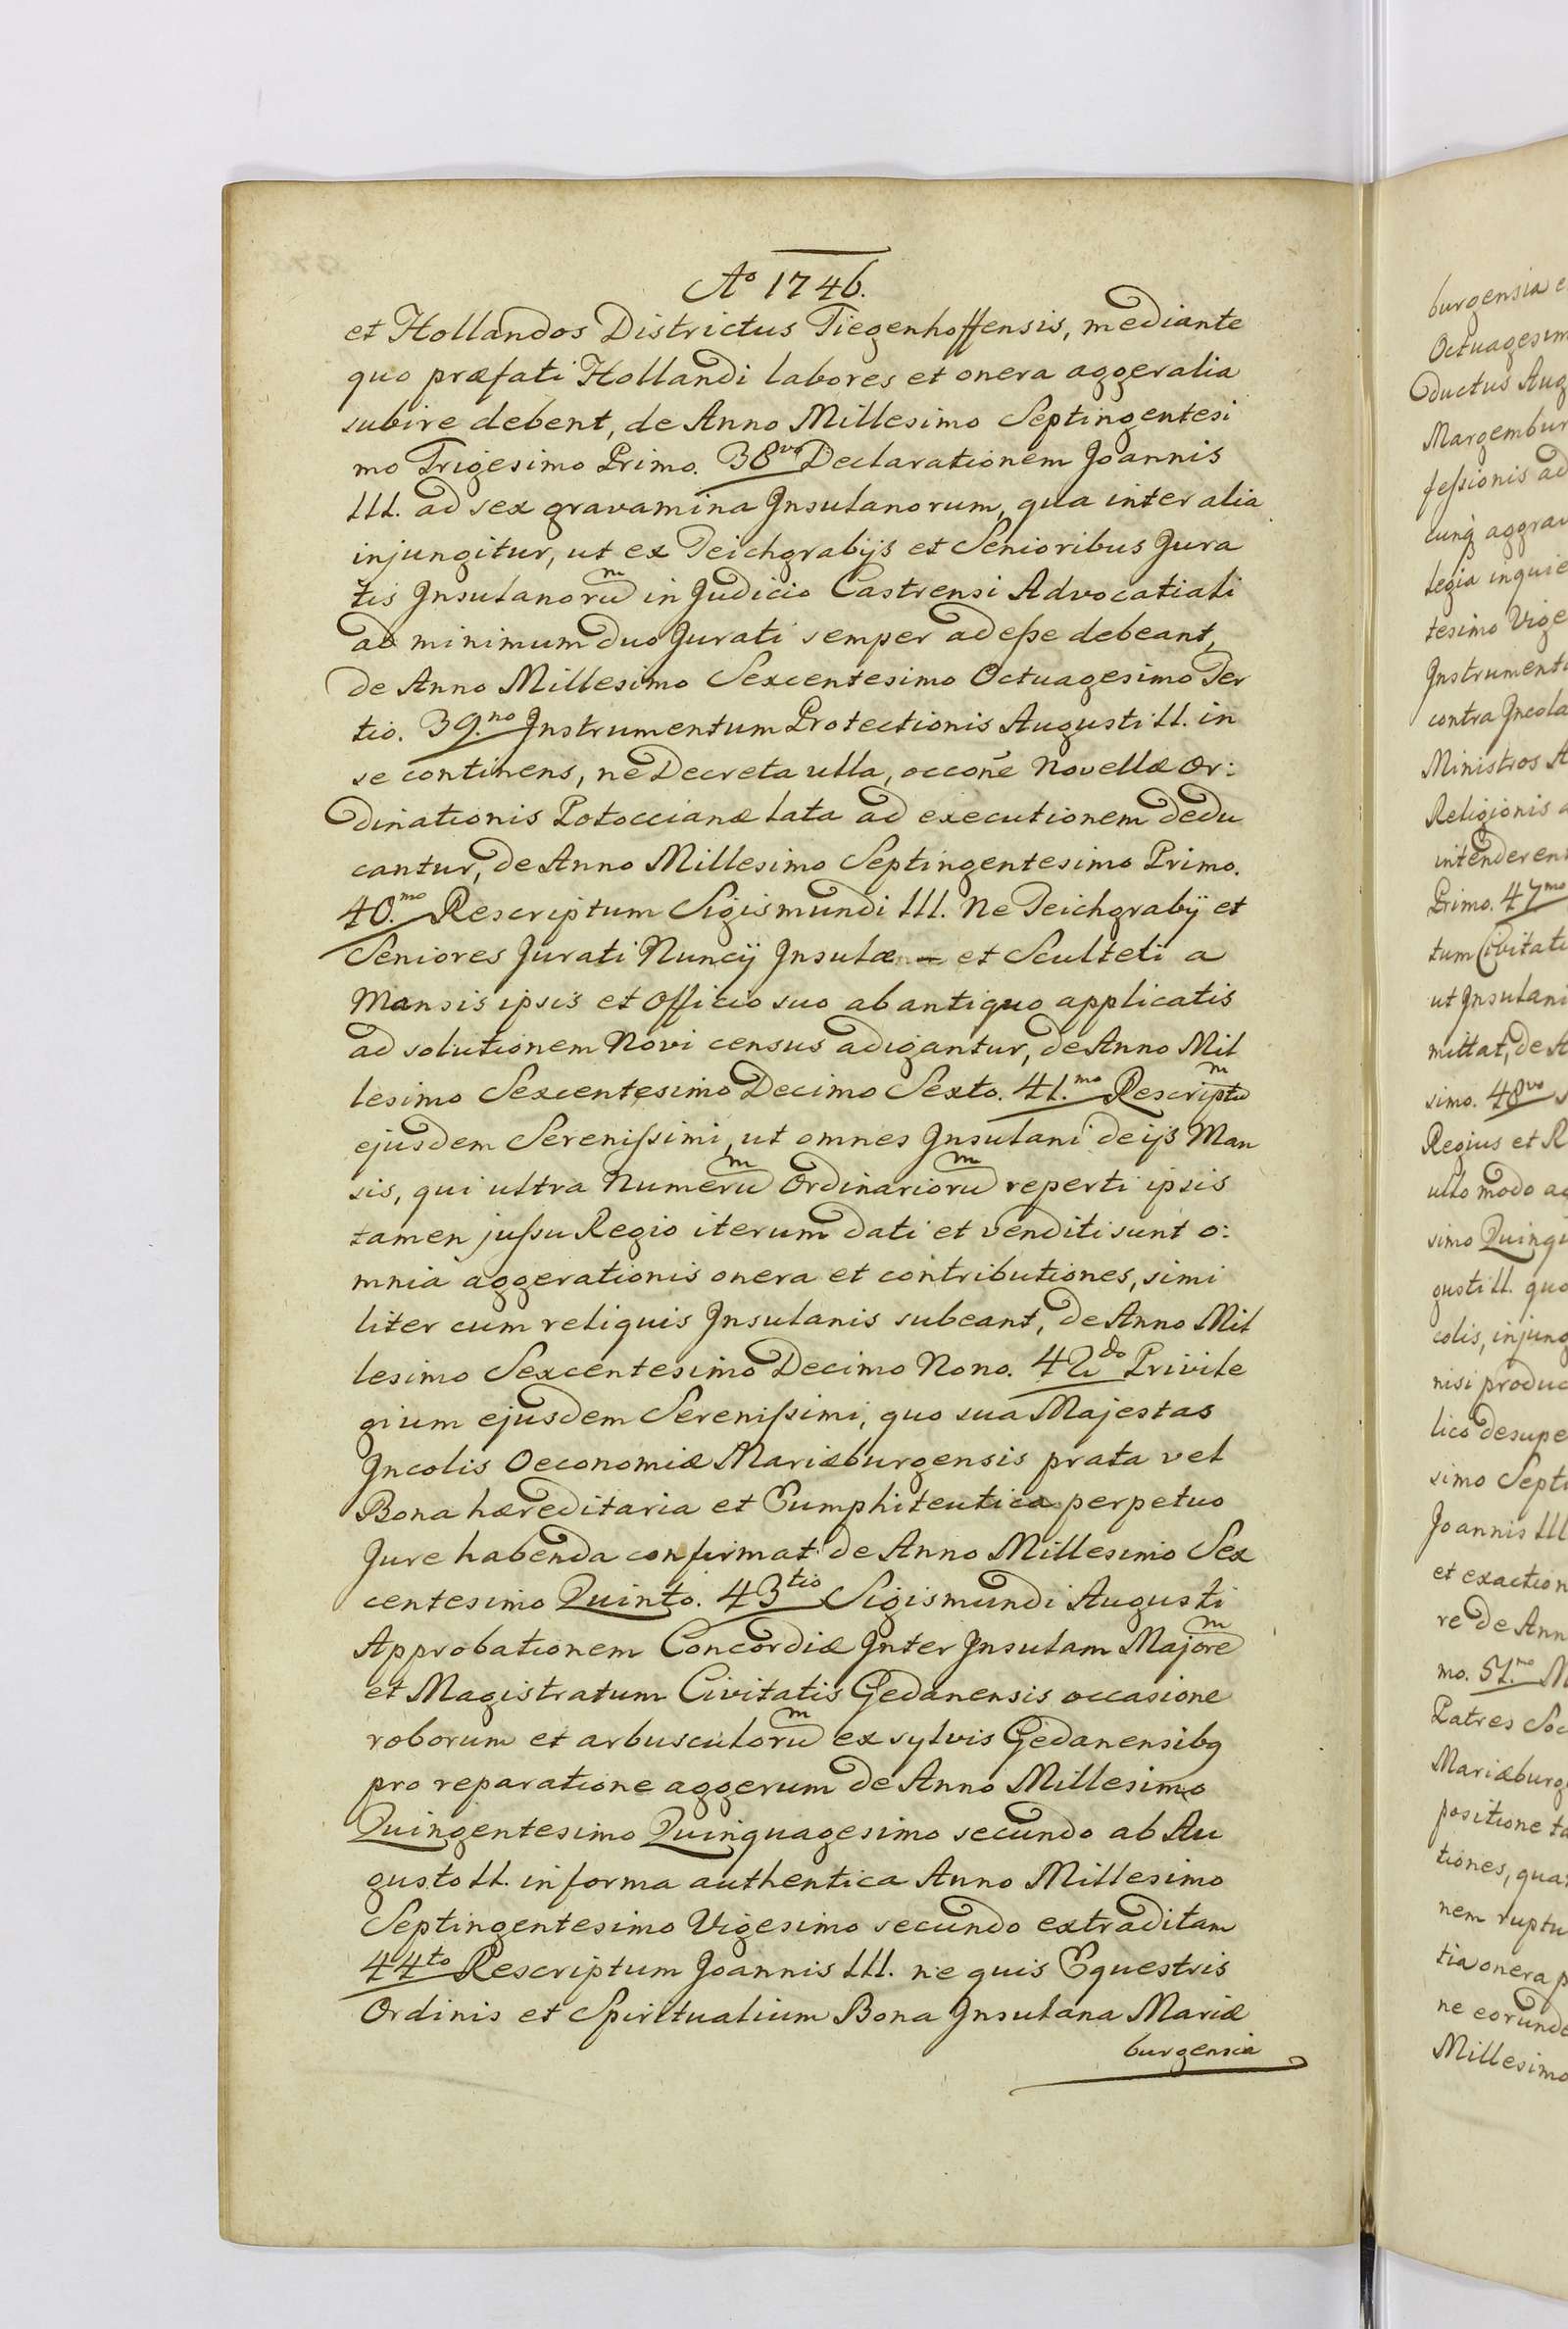 Aº 1746.
et Hollandos Districtus Tiegenhoffensis, mediante
quo præfati Hollandi labores et onera aggeralia
subire debent, de Anno Millesimo Septingentesi
mo Trigesimo Primo. 38vo Declarationem Joannis
III. ad sex gravamina Insulanorum, qua inter alia
injungitur, ut ex Teichgrabijs et Senioribus Jura
tis Insulanorum̅ in Judicio Castrensi Advocatiali
ad minimum duo Jurati semper adeſse debeant,
de Anno Millesimo Sexcentesimo Octuagesimo Ter
tio. 39.no Instrumentum Protectionis Augusti II. in
se continens, ne Decreta ulla, occone̅ Novellæ Or:
dinationis Potoccianæ lata ad executionem dedu
cantur, de Anno Millesimo Septingentesimo Primo.
40.mo Rescriptum Sigismundi III. Ne Teichgrabij et
Seniores Jurati Nuncij Insulæ – et Sculteti a
Mansis ipsis et Officio suo ab antiquo applicatis
ad solutionem Novi census adigantur, de Anno Mil
lesimo Sexcentesimo Decimo Sexto. 41.mo Rescriptum̅
ejusdem Sereniſsimi, ut omnes Insulani de ijs Man
sis, qui ultra Numerum̅ Ordinariorum̅ reperti ipsis
tamen juſsu Regio iterum dati et venditi sunt o:
mnia aggerationis onera et contributiones, simi
liter cum reliquis Insulanis subeant, de Anno Mil
lesimo Sexcentesimo Decimo Nono. 42do Privile
gium ejusdem Sereniſsimi, quo sua Majestas
Incolis Oeconomiæ Mariæburgensis prata vel
Bona hæreditaria et Eumphiteutica perpetuo
Jure habenda confirmat de Anno Millesimo Sex
centesimo Quinto. 43tio Sigismundi Augusti
Approbationem Concordiæ Inter Insulam Majorem̅
et Magistratum Civitatis Gedanensis occasione
roborum et arbusculorum̅ ex sylvis Gedanensibq
pro reparatione aggerum de Anno Millesimo
Quingentesimo Quinquagesimo secundo ab Au
gusto II. in forma authentica Anno Millesimo
Septingentesimo Vigesimo secundo extraditam
44to Rescriptum Joannis III. ne quis Equestris
Ordinis et Spiritualium Bona Insulana Mariæ
burgensia
burgensia
Octuagesim
ductus Aug
Margembur
feſsionis ad
cunq aggrav
legia inquie
tesimo Vige
Instrument
contra Incola
Ministros A
Religionis
intenderen
Primo. 47mo
tum Civitati
ut Insulani
mittat, de A
simo. 48vo
Regius et R
ullo modo ag
simo Quinqu
gusti II. quo
colis, injung
nisi produc
lico desupe
simo Septi
Joannis III
et exaction
re de Ann
mo. 51.mo M
Patres Soc
Mariæburg
positione ta
tiones, qua
nem ruptu
tia onera p
ne eorunde
Millesimo